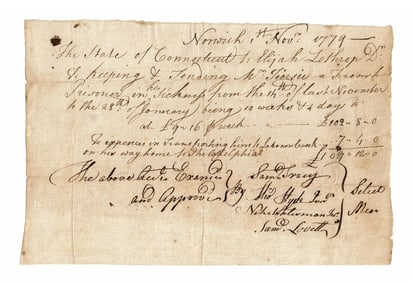 Norwich 1st Novr. 1779
The State of Connecticut to Elijah Lothrop Dr.
To keeping & Tending Mr. a French
Prisoner in his Sickness from the 14th of last November
to the 28th of January being 10 weeks & 4 days a
at £9-16 Week £102-8-0
To expences in Transporting him to Lebanon Crank 7-4-0
on his way home to Philadelphia £109-12-0
The above Acct. Examd
and Approvd
By
Saml Tracy
Thos Hyde Junr
Nehr Waterman Jr
Saml. Lovett
Select
Men